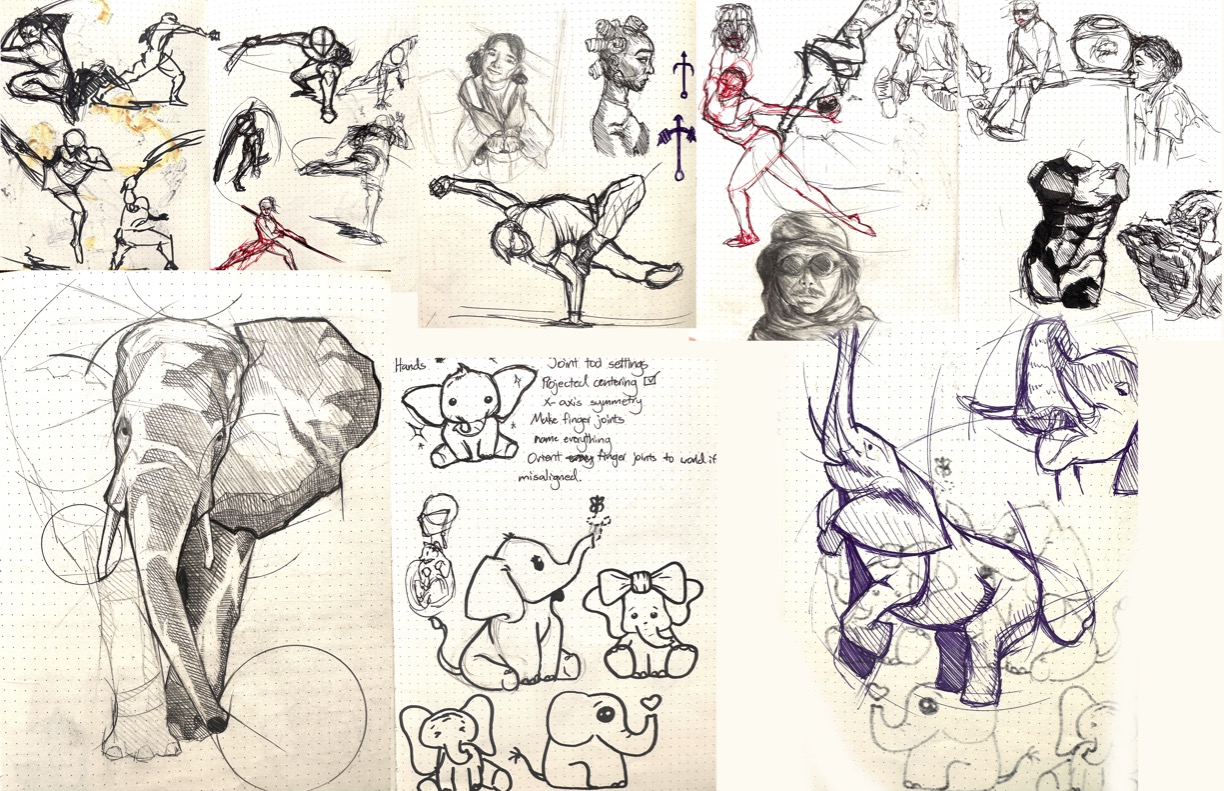 Hands
Joint tool settings
Projected centering ☑
X-axis symmetry
Make finger joints
name everything
Orient finger joints to world if
misaligned.